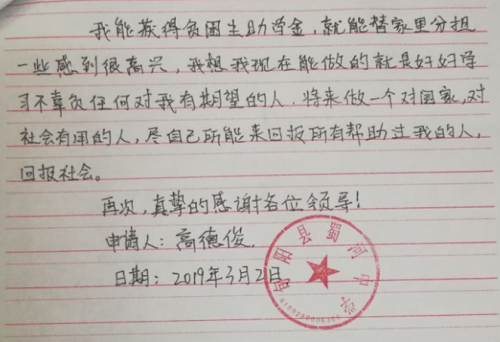 我能获得贫困生助学金，就能替家里分担
一些感到很高兴，我想我现在能做的就是好好学
习不辜负任何对我有期望的人.将来做一个对国家,对
社会有用的人，尽自己所能来回报所有帮助过我的人，
回报社会。
再次，真挚的感谢各位领导！
申请人：高德俊
日期：2019年3月2日
旬阳县蜀河中学